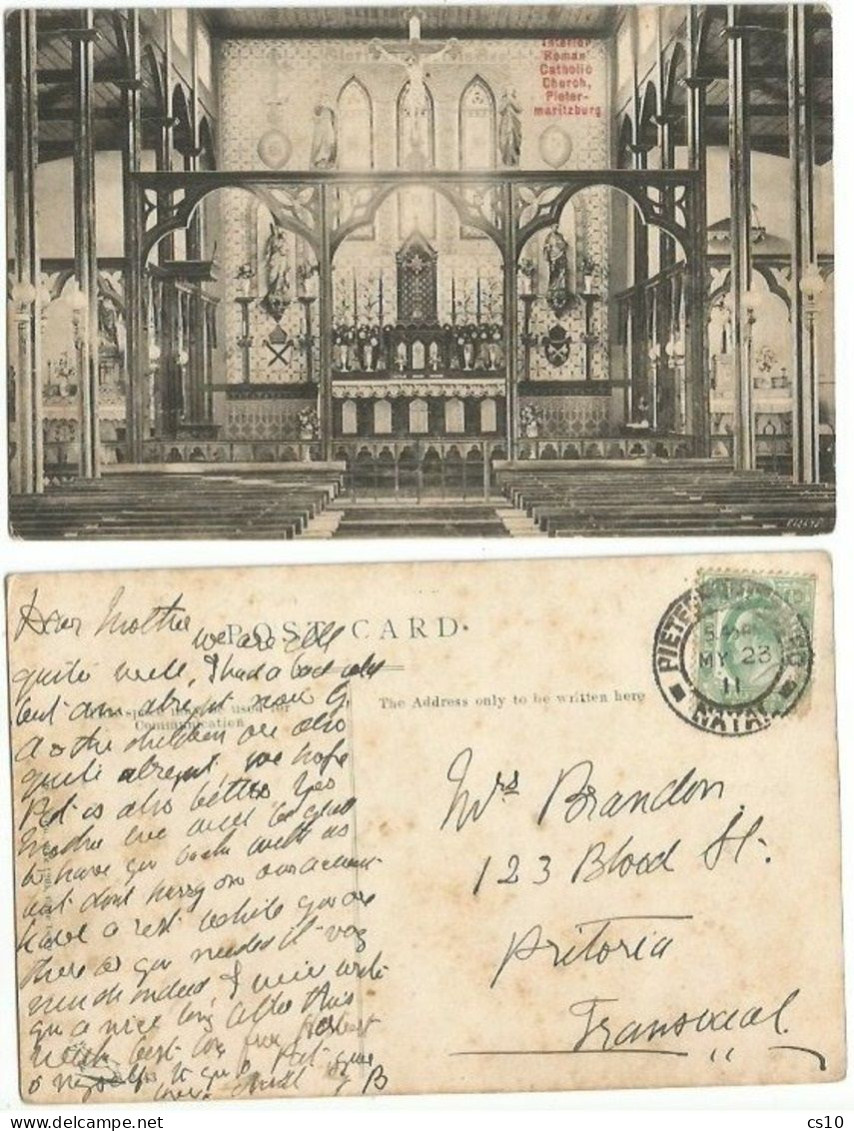 Interior
Roman
Catholic
Church,
Pieter-
maritzburg
POST CARD.
The Address only to be written here
used for
Communication
PIETERMARITZBURG
MY 23
11
NATAL
Dear Mother we are all
quite well, I had a bad
but am alright now
& the children are also
quite alright we hope
Pat is also better Yes
Mother we will be glad
to have you back with us
but dont hurry on our account
have a rest while you are
there as you needed it very
much indeed, I will write
you a nice long letter this
week best love from
myself to you & Pat
B
Mrs Brandon
123 Blood St.
Pritoria
Transvaal.
cs10